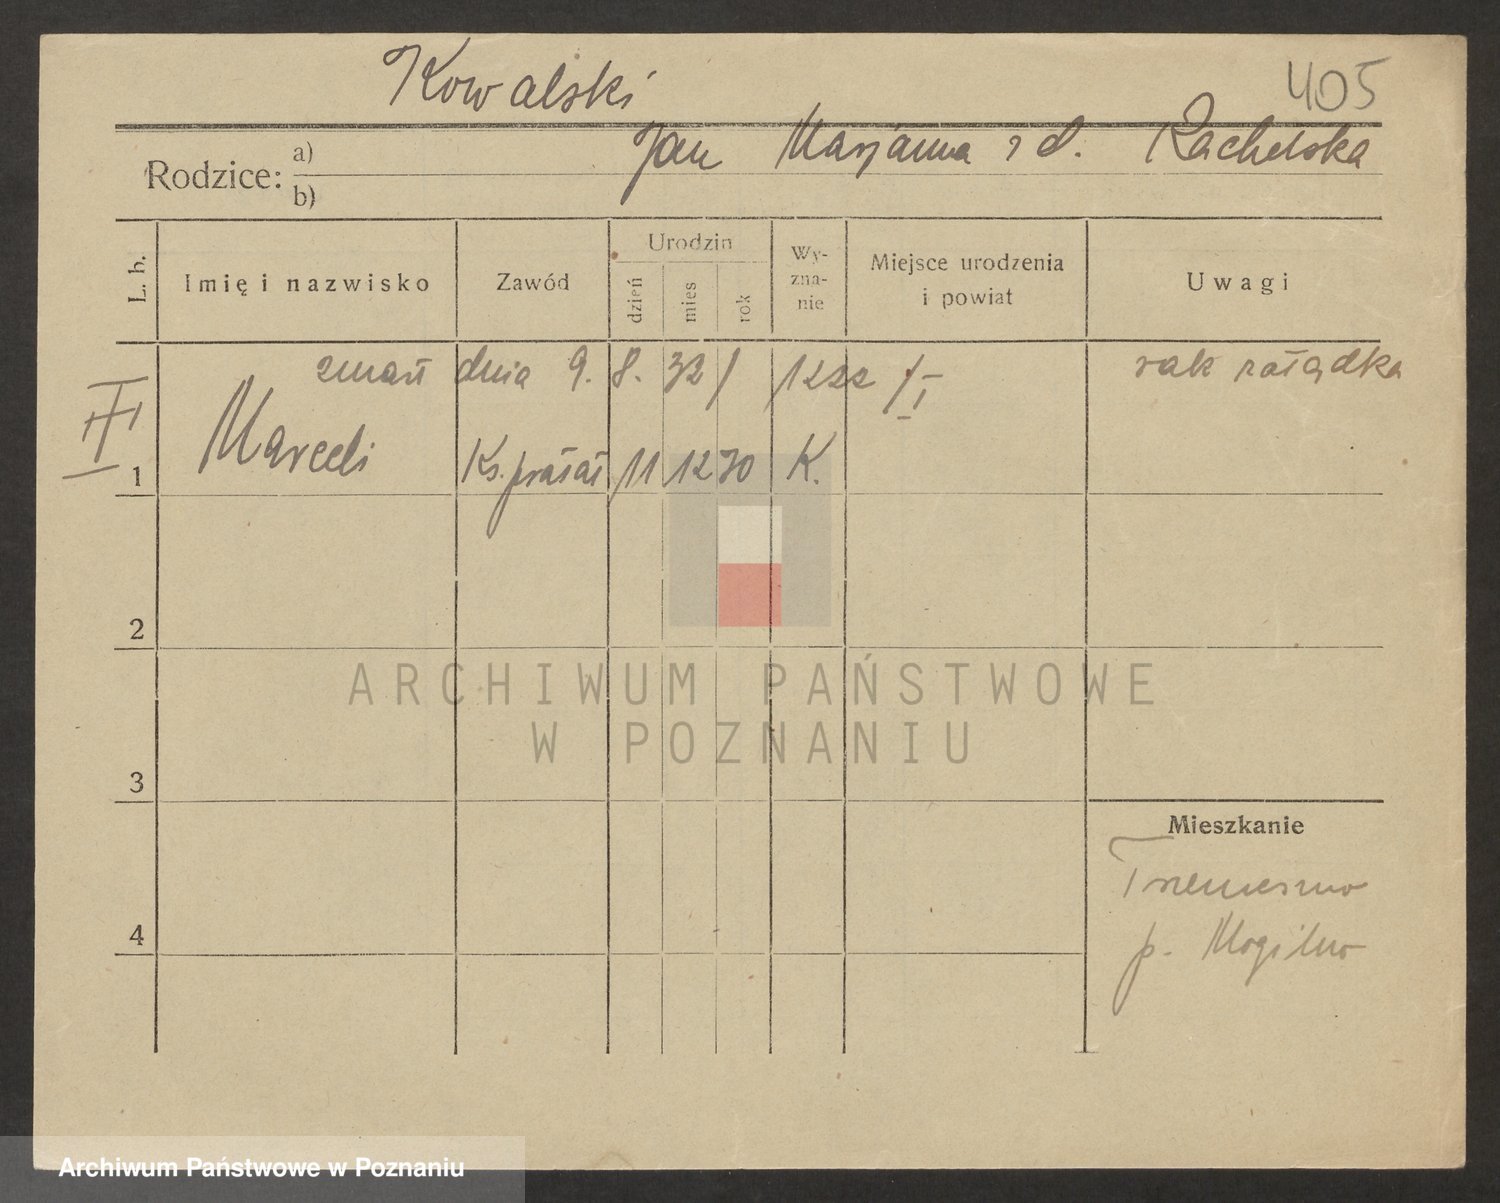 Kowalski 405
Rodzice: a) Jan Marjanna z d. Rachelska
b)
L. b. Imię i nazwisko Zawód Urodzin dzień mies rok Wy-zna-nie Miejsce urodzenia i powiat Uwagi
zmarł dnia 9. 8. 32 / rak żołądka
III
1 Marceli Ks. prałat 11 12 70 K.
2
3
4
Mieszkanie
Trzemeszno
p. Mogilno
ARCHIWUM PAŃSTWOWE
W POZNANIU
Archiwum Państwowe w Poznaniu